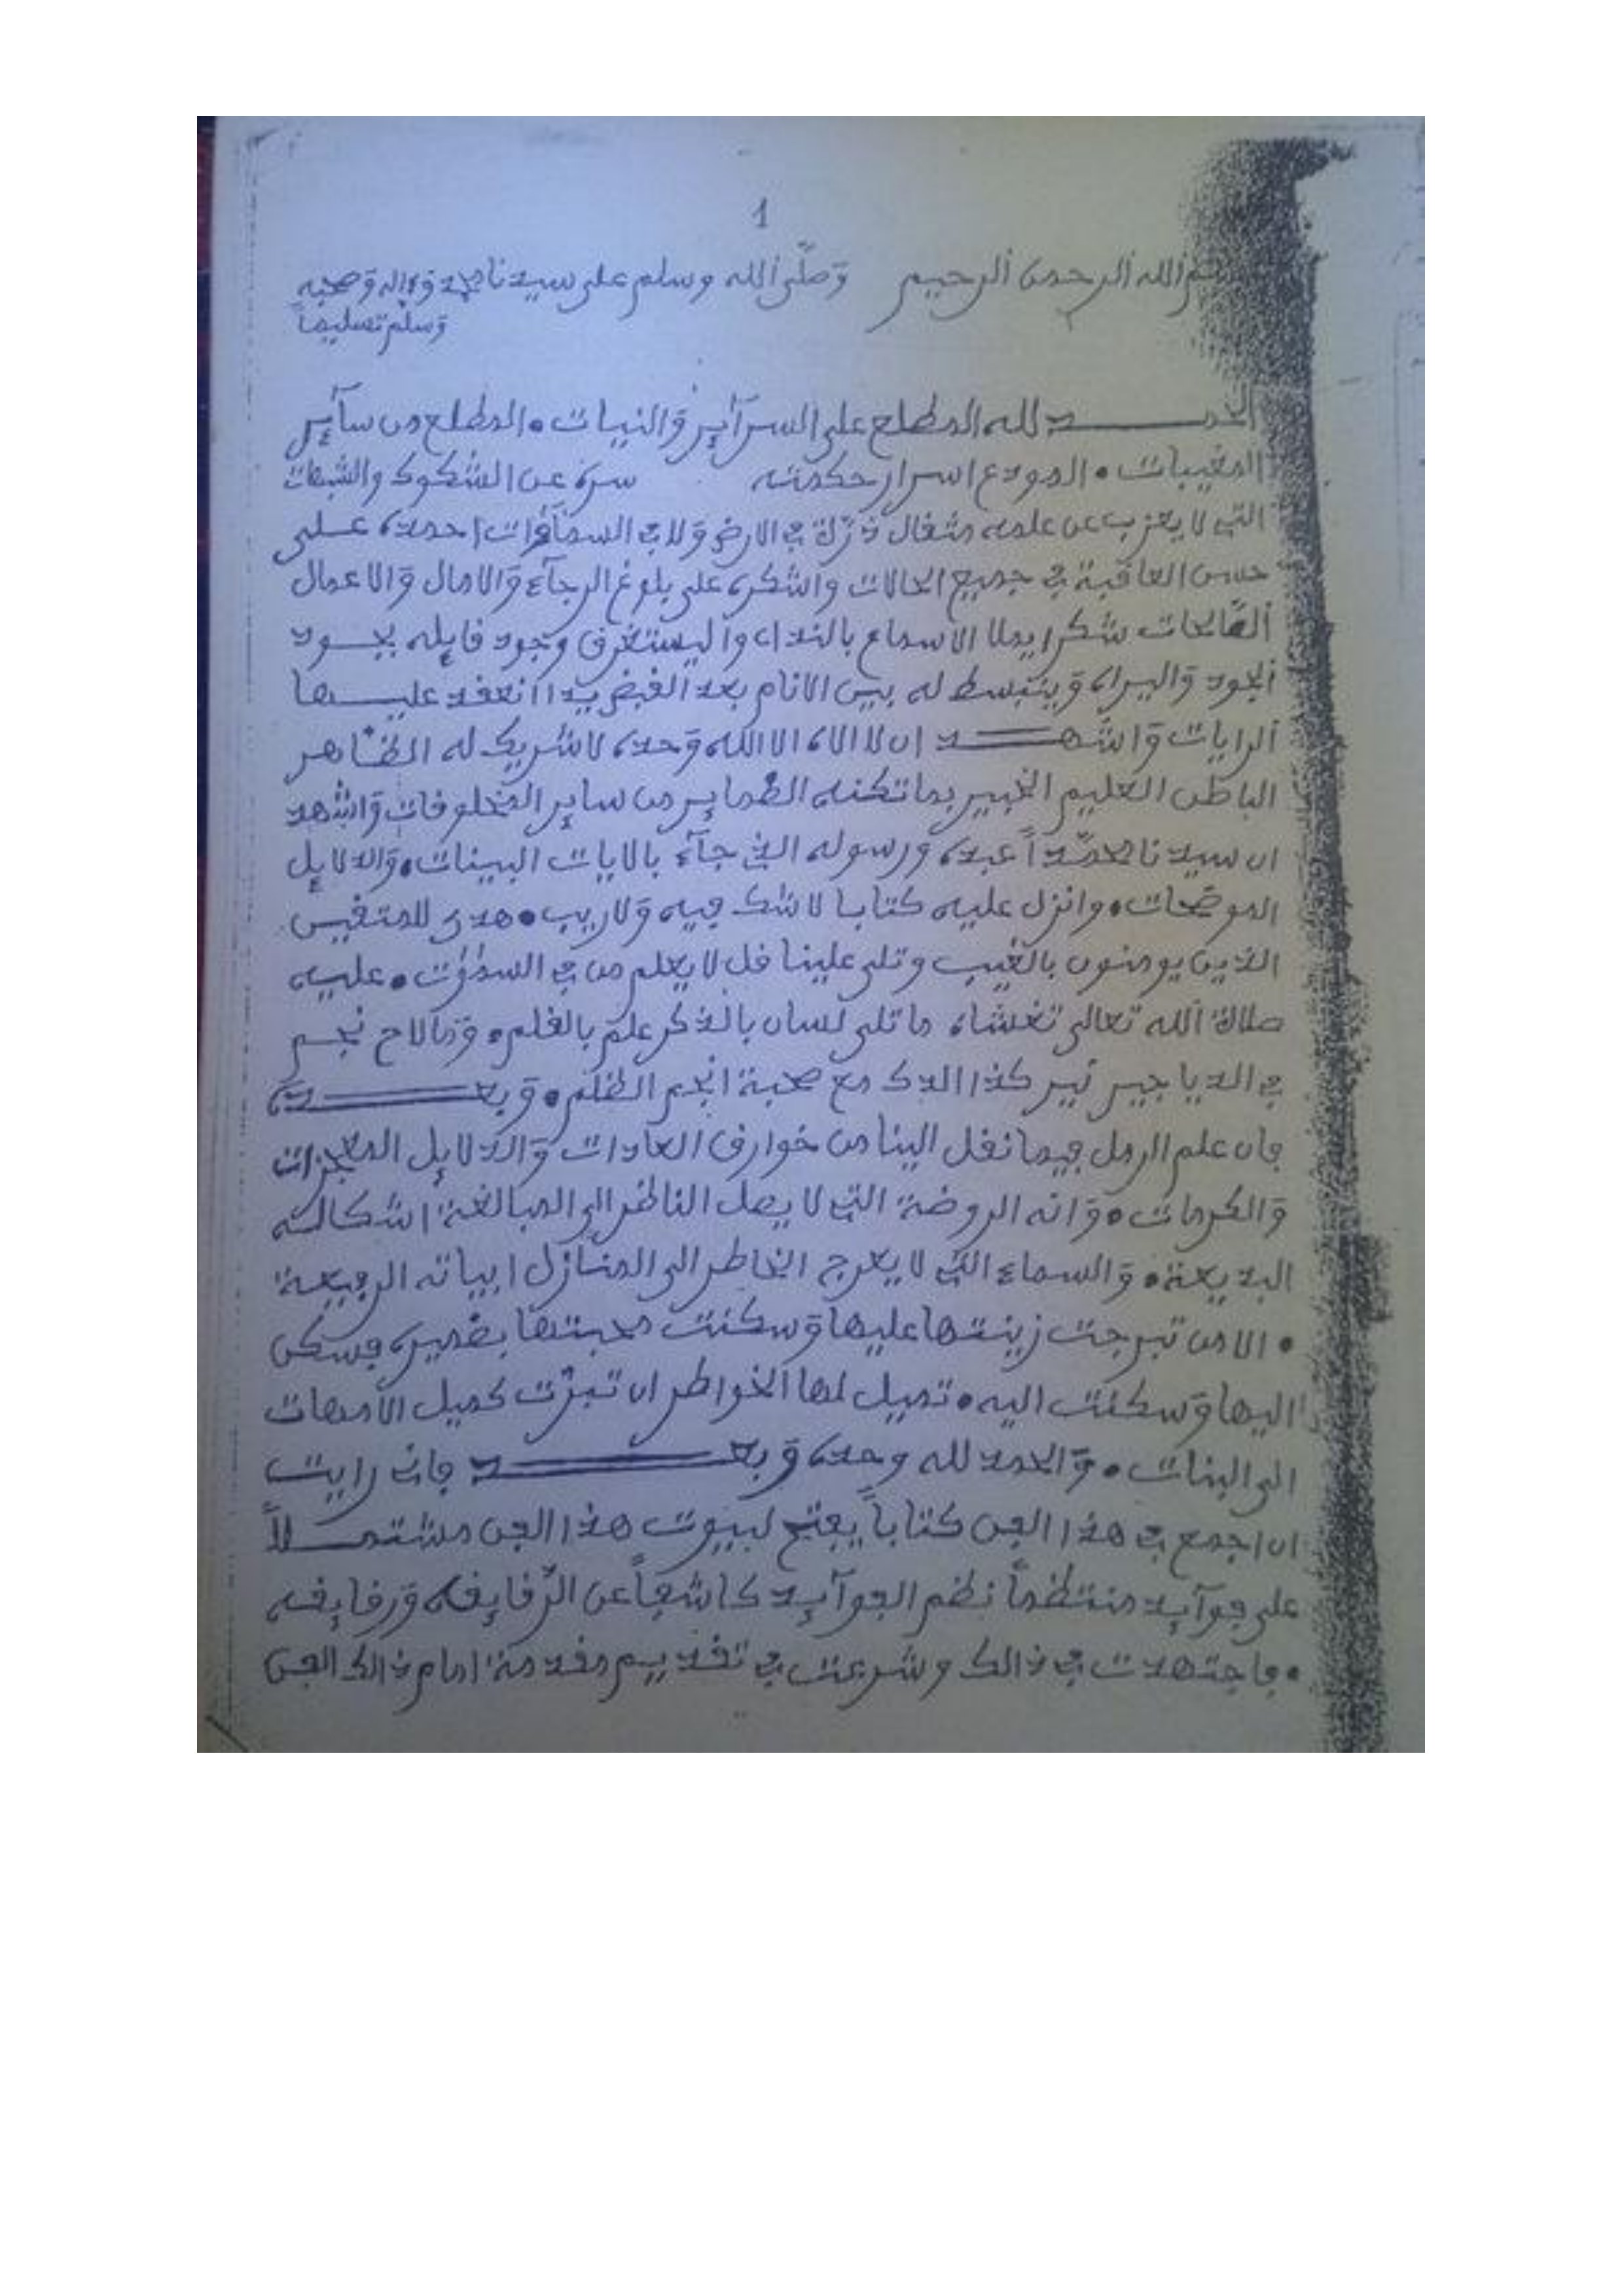 1
بسم الله الرحمن الرحيم وَصلّى الله وسلم على سيدنا محمد وءاله وَصحبه
وَسلم تسليماً
الحمـــد لله المطلع على السرآير وَالنيات • المطلع من سآير
المغيبات • المودع اسرار حكمته سره عن الشكوك والشبهات
التي لا يعزب عن علمه مثقال ذرّة في الارض وَلا في السمآوات احمده علـى
حسن العاقبة في جميع الحالات واشكره على بلوغ الرجآء وَالامال وَالاعمال
الصّالحات شكرا يملا الاسماع بالنداء و اليستغرق وجود قايله بجـود
الجود وَالبراء وَينبسط له بين الانام بعد القبض يدا انعقد عليـها
الرايات وَاشهـــد ان لا الاه الا الله وَحده لا شريك له الظاهر
الباطن العليم الخبير بما تكنه الضماير من ساير المخلوقات وَاشهد
ان سيدنا محمّداً عبده ورسوله الذي جآء بالايات البينات • وَالدلايل
الموضحات • وانزل عليه كتابا لا شك فيه وَلا ريب • هدى للمتقين
الذين يومنون بالغيب وتلى علينا قل لا يعلم من في السموات • عليه
صلاة الله تعالى تغشاه ما تلى لسان بالذكر علم بالقلم • وَما لاح نجـم
في الدياجير نير كذا الدك مع صحبة انجم الظلم • وَبعـــده
فان علم الرمل فيما نقل الينا من خوارق العادات وَالدلايل المعجزات
وَالكرمات • وَانه الروضة التي لا يصل الناظر الى المبالغة اشكالـه
البديعة • وَالسماء التي لا يعرج الخاطر الى المنازل ابياته الرفيعة
• الا من تبرجت زينتها عليها وَسكنت محبتها بضميره فسكن
اليها وَسكنت اليه • تميل لها الخواطر ان تبرّت كميل الامهات
الى البنات • وَالحمد لله وحده وَبعـــد فان رايت
ان اجمع في هذا الفن كتاباً يفتح لبيوت هذا الفن مشتمـلاً
على فوآيد منتظماً نظم الفوآيد كاشفاً عن الرّقايقه وَرقايقه
• فاجتهدت في ذالك وشرعت في تقديم مقدمة امام ذالك الفن